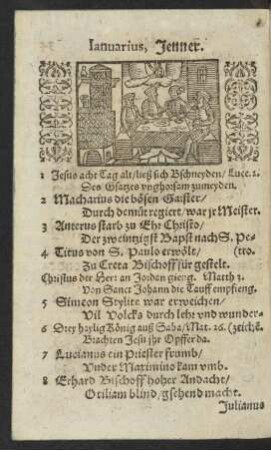 Ianuarius, Jenner.
1 Jesus acht Tag alt/ ließ sich Bschneyden/ Luce. 2.
Des Gsatzes vnghorsam zumeyden.
2 Macharius die bösen Gaister/
Durch demůt regiert/ war jr Meister.
3 Anterus starb zu Ehr Christo/
Der zweintzigst Bapst nach S. Pe-
4 Titus von S. Paulo erwölt/ (tro.
Zu Creta Bischoff für gestelt.
Christus der Herr an Jordan gieng. Matth 3.
Von Sanct Johann die Tauff empfieng.
5 Simeon Stylite war erweichen/
Vil Volcks durch lehr vnd wunder-
6 Drey haylig König auß Saba/ Mat. 26. (zeichē.
Brachten Jesu jhr Opffer da.
7 Lucianus ein Priester frumb/
Vnder Maximino kam vmb.
8 Erhard Bischoff hoher Andacht/
Otiliam blind/ gsehend macht.
Julianus